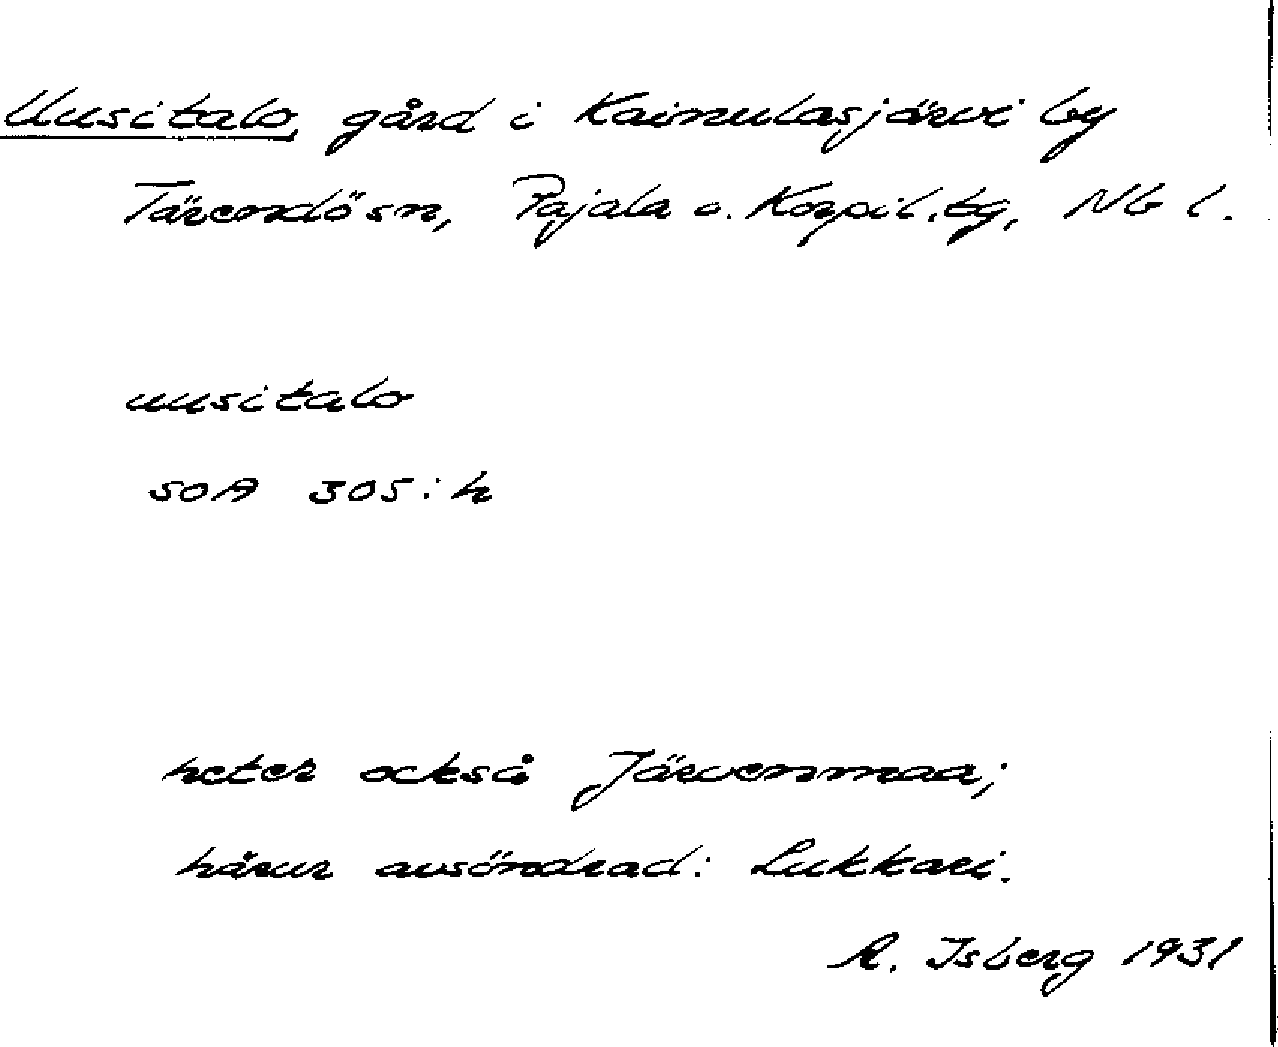 Uusitalo, gård i Kainulasjärvi by
Tärendö sn, Pajala o. Korpil. tg, NB l.
uusitalo
SOA 305:h
heter också Järvenmaa;
härur avsöndrad: Lukkari.
R. Isberg 1931